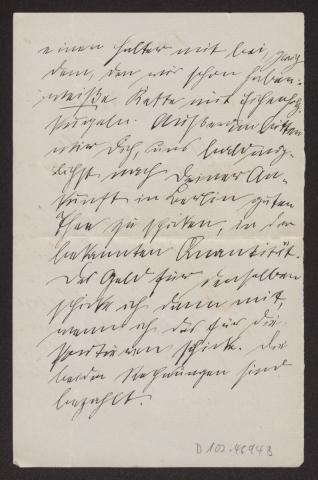 einen Halter mit bei, ganz
dem, den wir schon haben:
weiße Kette mit
Kugeln. Außerdem bitten
wir Dich, uns baldmög-
lichst nach Deiner An-
kunft in Berlin guten
Thee zu schicken, in der
bekannten Quantität.
Das Geld für denselben
schicke ich dann mit,
wenn ich das für die
schicke. Die
beiden Rechnungen sind
bezahlt.
D 100-4694 B